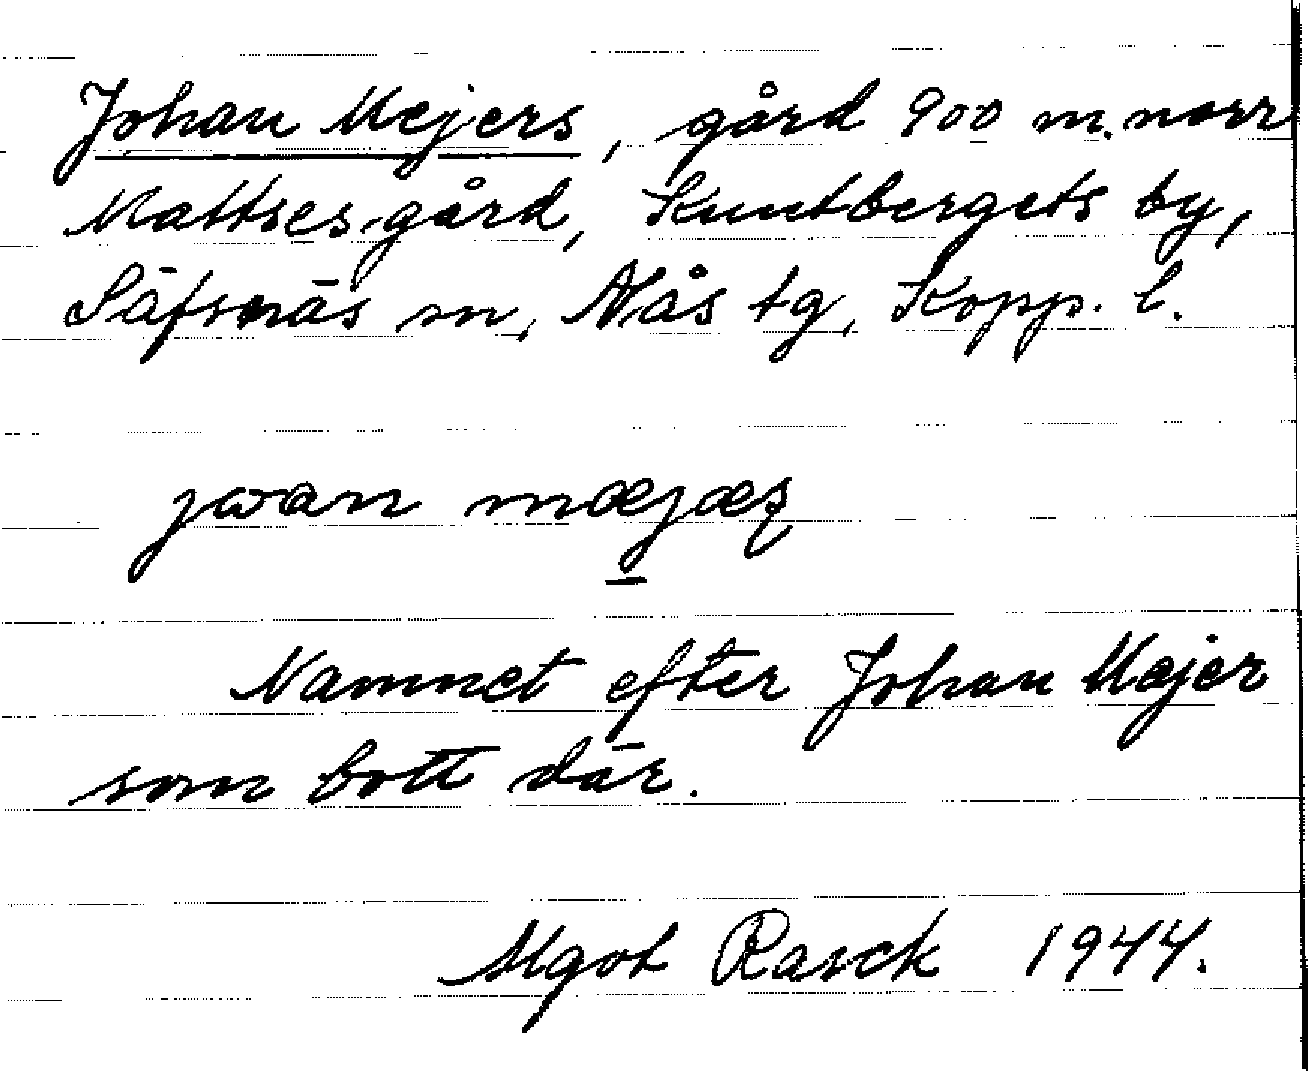 Johan Mejers, gård 900 m. norr
Mattses gård, Knutbergets by,
Säfsnäs sn, Nås tg, Kopp. l.
jωan mæjæʂ
Namnet efter Johan Mejer
som bott där.
Mgot Rasck 1944.